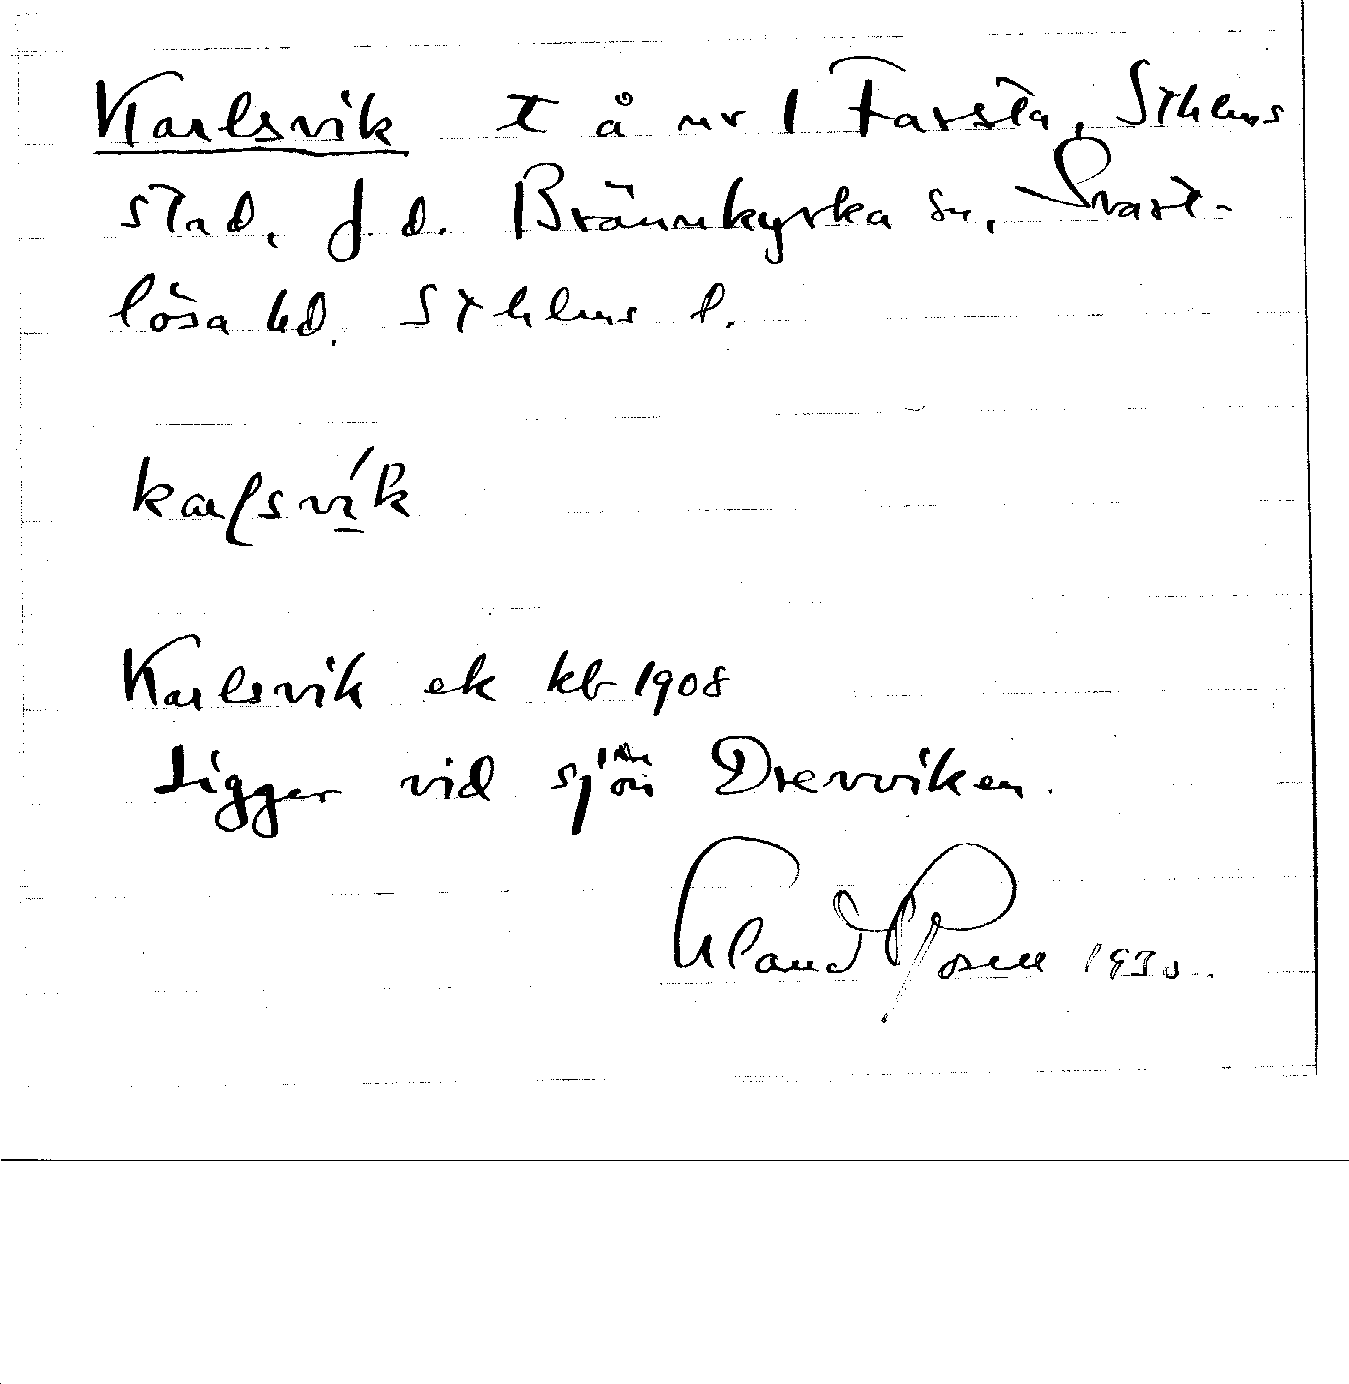 Karlsvik t å nr 1 Farsta, Sthlms
stad, f.d. Brännkyrka sn, Svart-
lösa hd. Sthlms l.
Karlsvik ek kb 1908
Ligger vid sjön Drevviken.
1930.